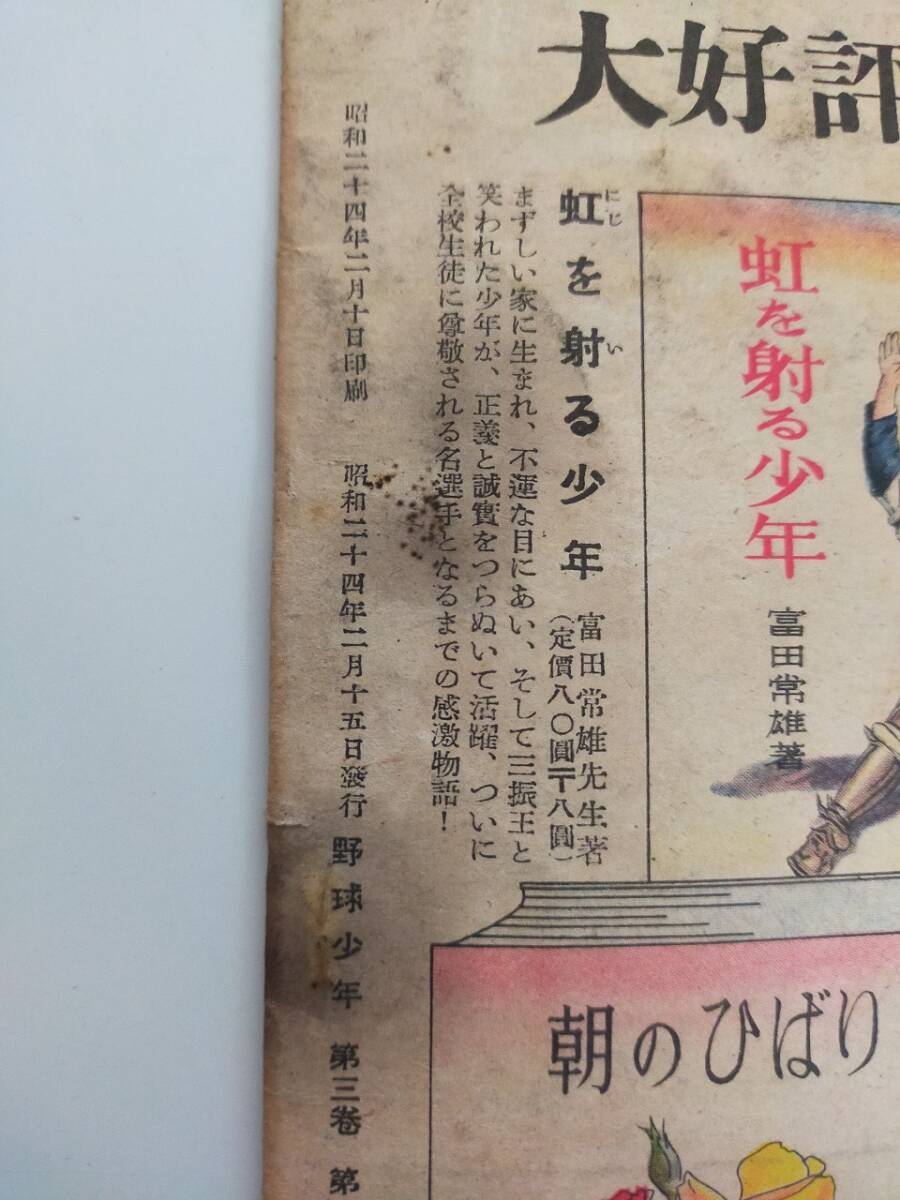 大好評
虹を射る少年
富田常雄著
虹を射る少年
にじ
い
富田常雄先生著
（定價八〇圓〒八圓）
まずしい家に生まれ、不運な目にあい、そして三振王と
笑われた少年が、正義と誠實をつらぬいて活躍、ついに
全校生徒に尊敬される名選手となるまでの感激物語！
昭和二十四年二月十日印刷 昭和二十四年二月十五日發行 野球少年 第三卷 第
朝のひばり